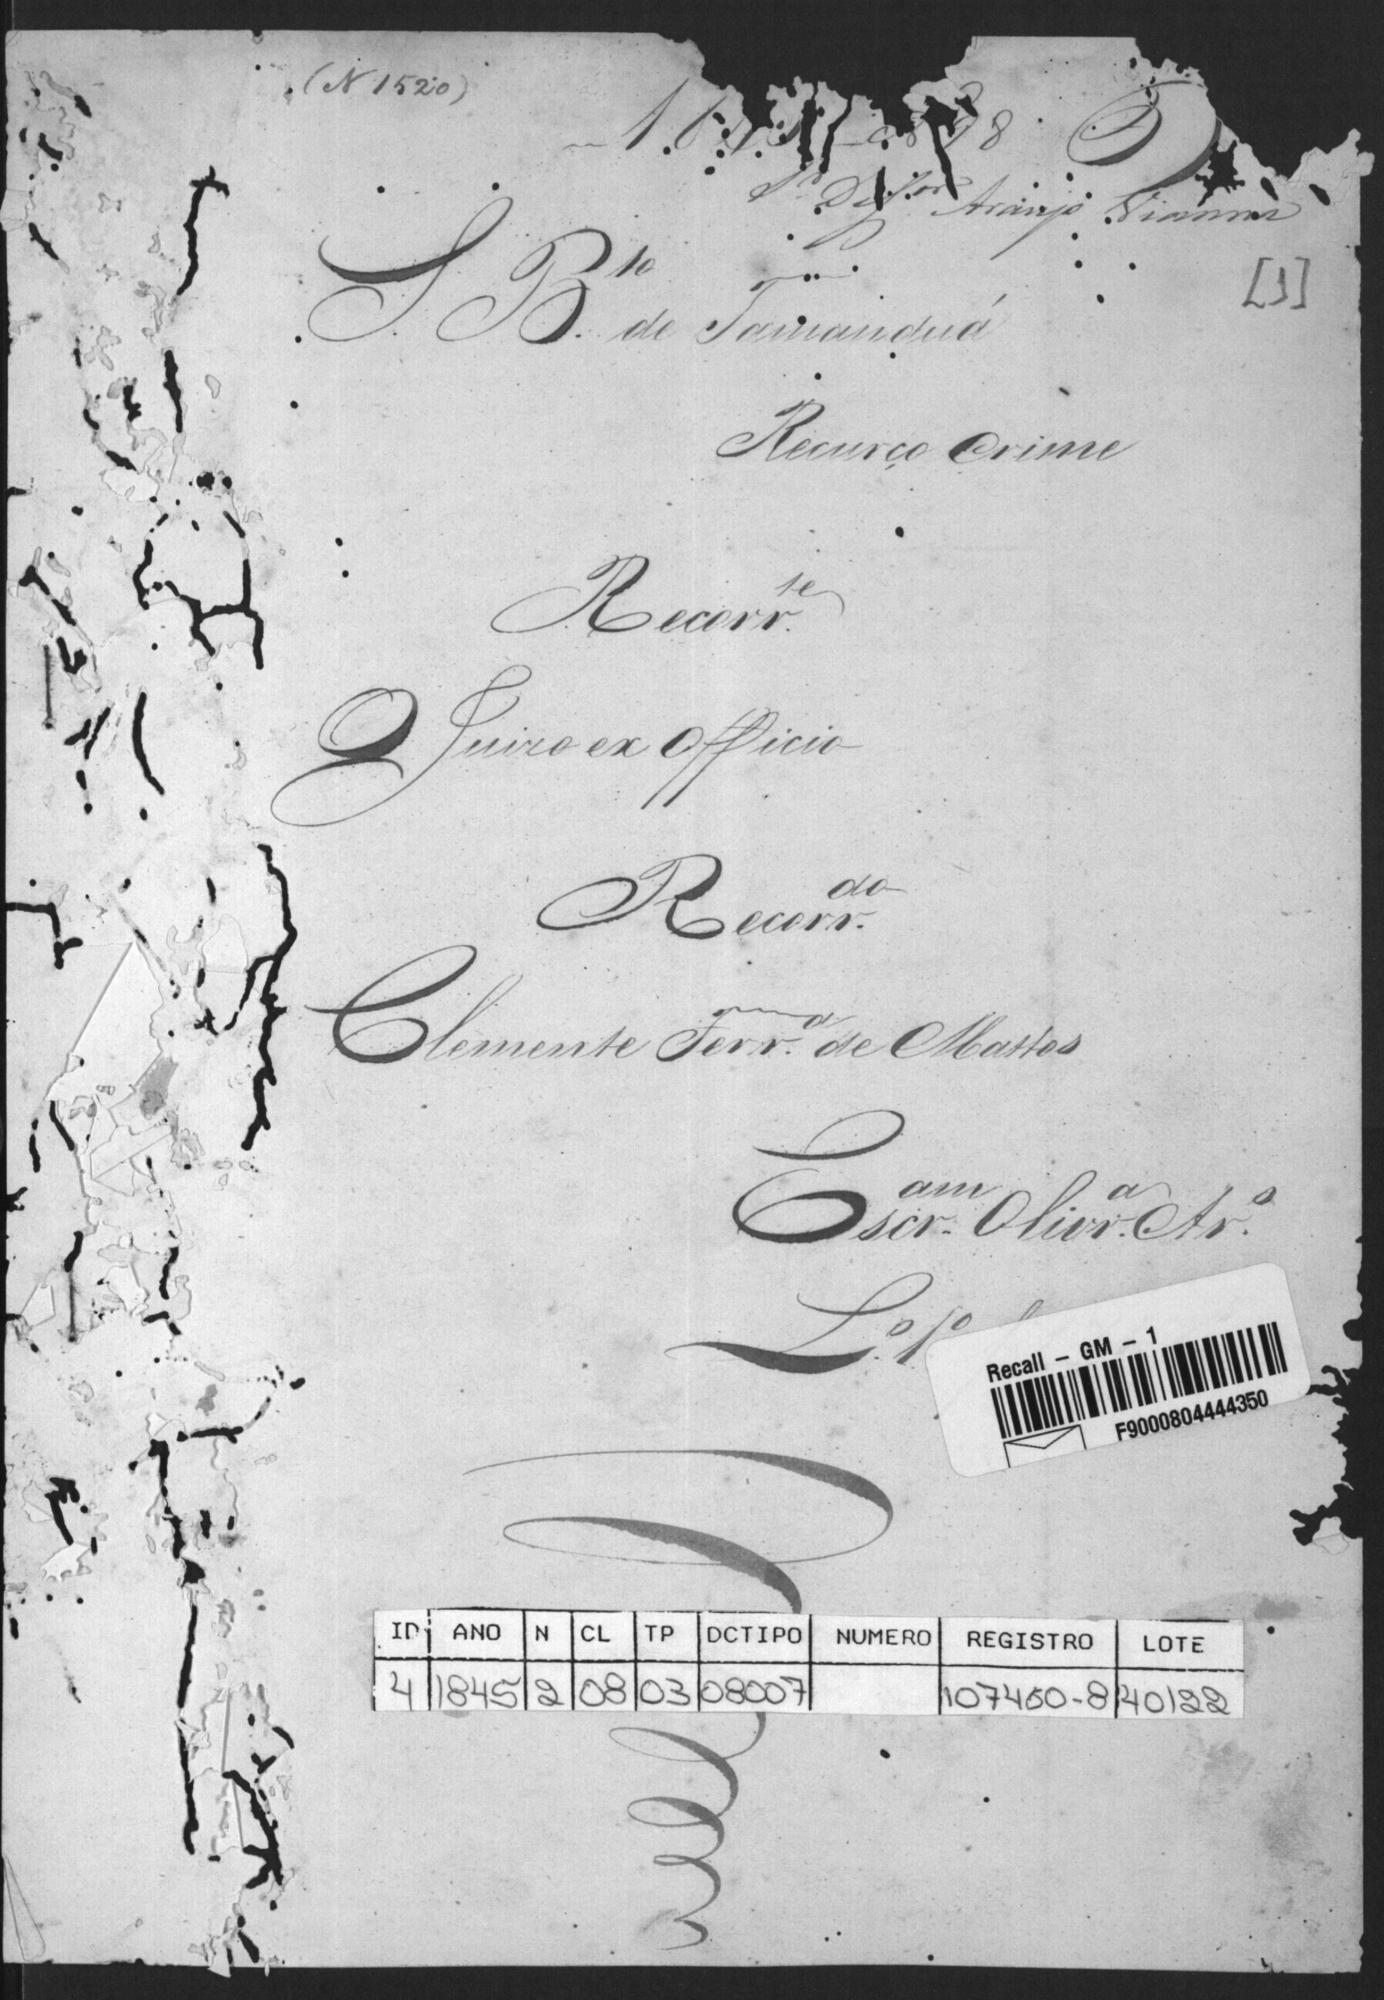 (N 1520)
Araujo Vianna
[1]
S. B.to de Tamanduá
Recurço Crime
Recorr.te
O Juizo ex officio
Recorr.do
Clemente Ferr.a de Mattos
Escr.am Olivr.a Ar.o
L.o 1o
Recall - GM - 1
F9000804444350
ID ANO N CL TP DCTIPO NUMERO REGISTRO LOTE
4 1845 2 08 03 08007 107460-8 40122